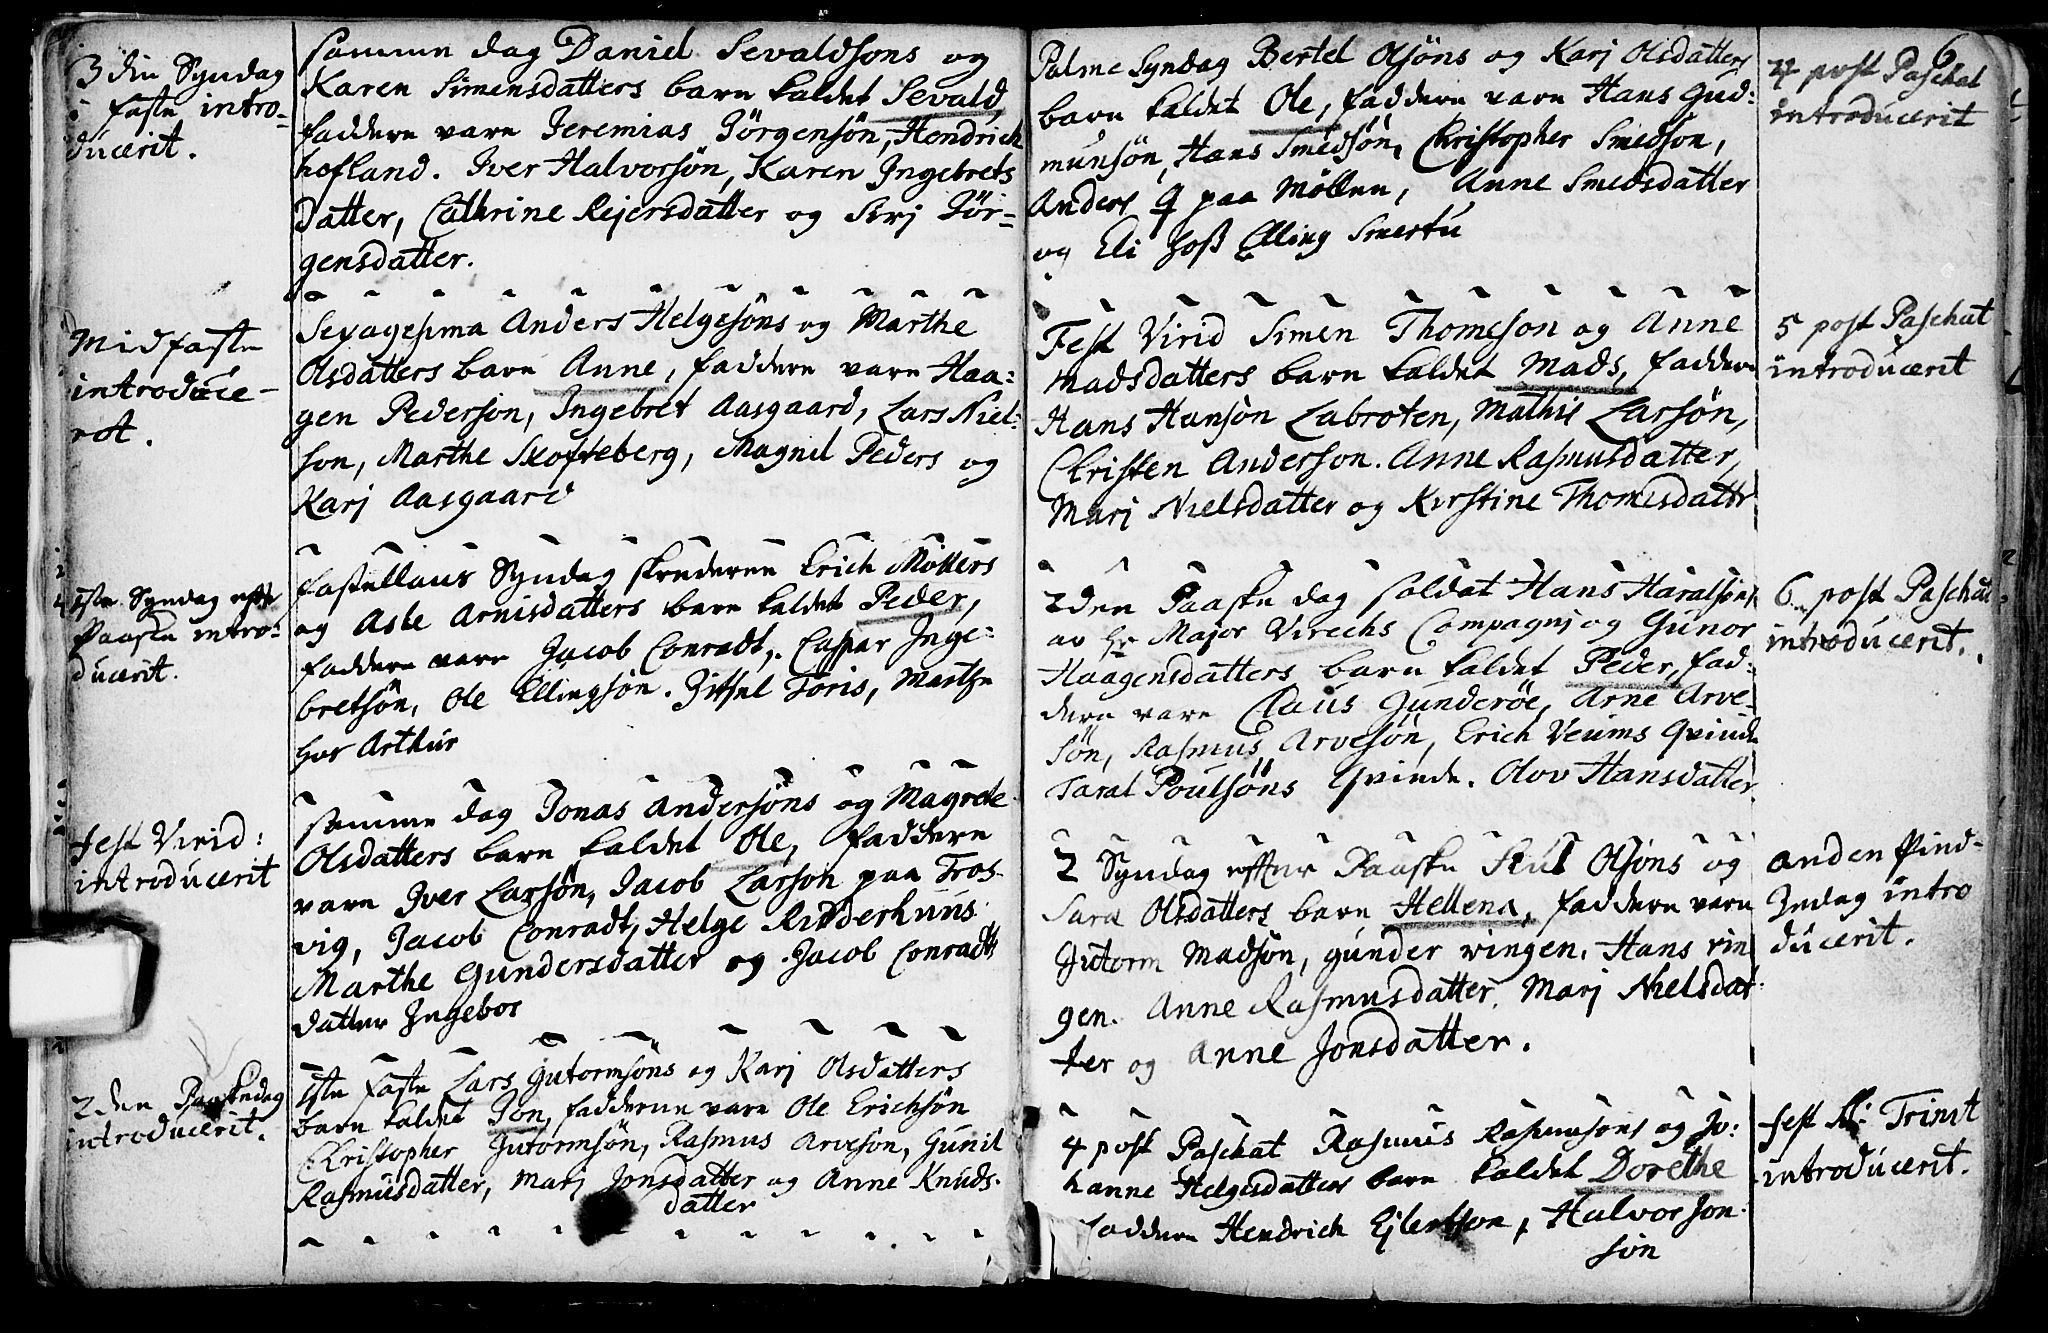 3 din Syndag
i faste intro-
ducerit.
samme dag Daniel Sevaldsons og
Karen Simensdatters barn kaldet Sevald,
faddere vare Jeremias Jörgensön, Hendrich
hofland. Iver Halvorsön, Karen Ingebrets
datter, Cathrine Rejersdatter og Siri Jör-
gensdatter.
Midfaste
introduce-
rot.
Sexagesima Anders Helgesöns og Marthe
Olsdatters barn Anne, faddere vare Haa-
gen Pederson, Ingebret Aasgaard, Lars Niel-
son, Marthe Skofteberg, Magnil Peders og
Karj Aasgaard
1ste Syndag efter
Paaske intro-
ducerit.
fastellaus Syndag skrederen Erich Möllers
og Asle Arnisdatters barn kaldet Peder,
faddere vare Jacob Conradt, Casper Inge-
bretsön, Ole Ellingsön. Zitsel Töris, Marthe
hos Arthur
fest Virid:
introducerit
samme dag Jonas Andersöns og Magrete
Olsdatters barn kaldet Ole, faddere
vare Iver Larsön, Jacob Larson paa Tros-
vig, Jacob Conradt, Helge Ridderhuus
Marthe Gundersdatter og Jacob Conradts
datter Ingebor
2den Paaskedag
introducerit.
1ste faste Lars Gutormsöns og Karj Olsdatters
barn kaldet Jon, fadderne vare Ole Erichsön
Christopher Gutormsön, Rasmus Arveson, Gunil
Rasmusdatter, Marj Jonsdatter og Anne Knuds-
datter
6
Palme Syndag Bertel Olsöns og Karj Olsdatters
barn kaldet Ole, faddere vare Hans Gud-
munsön, Hans Smedsön, Christopher Smedson,
Anders paa Möllen, Anne Smedsdatter
og Eli hoß Elling Smertu
4 post Paschat
introducerit
Fest Virid Simen Thomeson og Anne
Madsdatters barn kaldet Mads, faddere
Hans Hansön Labroten, Mathis Larsön,
Christen Anderson. Anne Rasmusdatter,
Marj Nielsdatter og Kirstine Thomesdattr
5 post Paschat
introducerit
2den Paaske dag soldat Hans Haralsöns
av hr Major Virechs Compagnj og Gunor
Haagensdatters barn kaldet Peder, fad-
dere vare Claus Gunderöe, Arne Arve-
sön, Rasmus Arvesön, Erich Veums Qvinde
Taral Poulsöns Qvinde. Olov Hansdatter.
6 post Paschat
introducerit.
2 Syndag efter Paaske Skul Olsöns og
Sara Olsdatters barn Hellena, faddere vare
Gutorm Madsön, gunder vingen. Hans vin
gen. Anne Rasmusdatter. Marj Nielsdat-
ter og Anne Jonsdatter.
anden Pind-
zedag intro
ducerit.
4 post Paschat Rasmus Rasmusons og Jo-
hanne Helgesdatters barn kaldet Dorethe
faddere Hendrich Ejlertson, Halvor Jon-
sön
fest St: Trinit
introducerit.